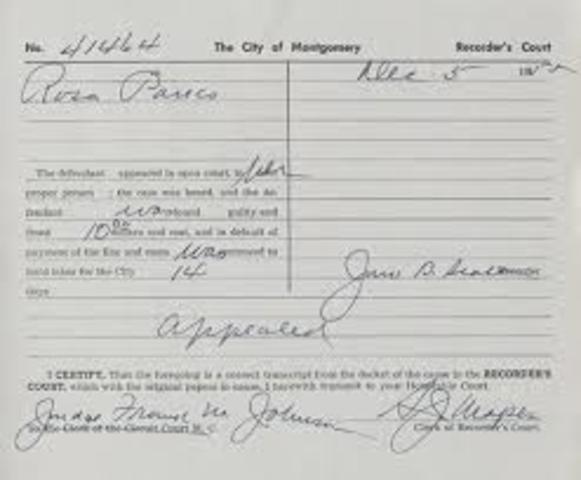 No. 41464 The City of Montgomery Recorder's Court
Dec 5
Rosa Parks
The defendant appeared in open court, in her
proper person ; the case was heard, and the de-
fendant was found guilty and
fined 10 00 dollars and cost, and in default of
payment of the fine and costs was sentenced to
hard labor for the City 14
days
Jno B. Scott
Appealed
I CERTIFY, That the foregoing is a correct transcript from the docket of the cause in the RECORDER'S
COURT, which with the original papers in cause, I herewith transmit to your Honorable Court.
Judge Frank M Johnson
To the Clerk of the Circuit Court M. C. Clerk of Recorder's Court.